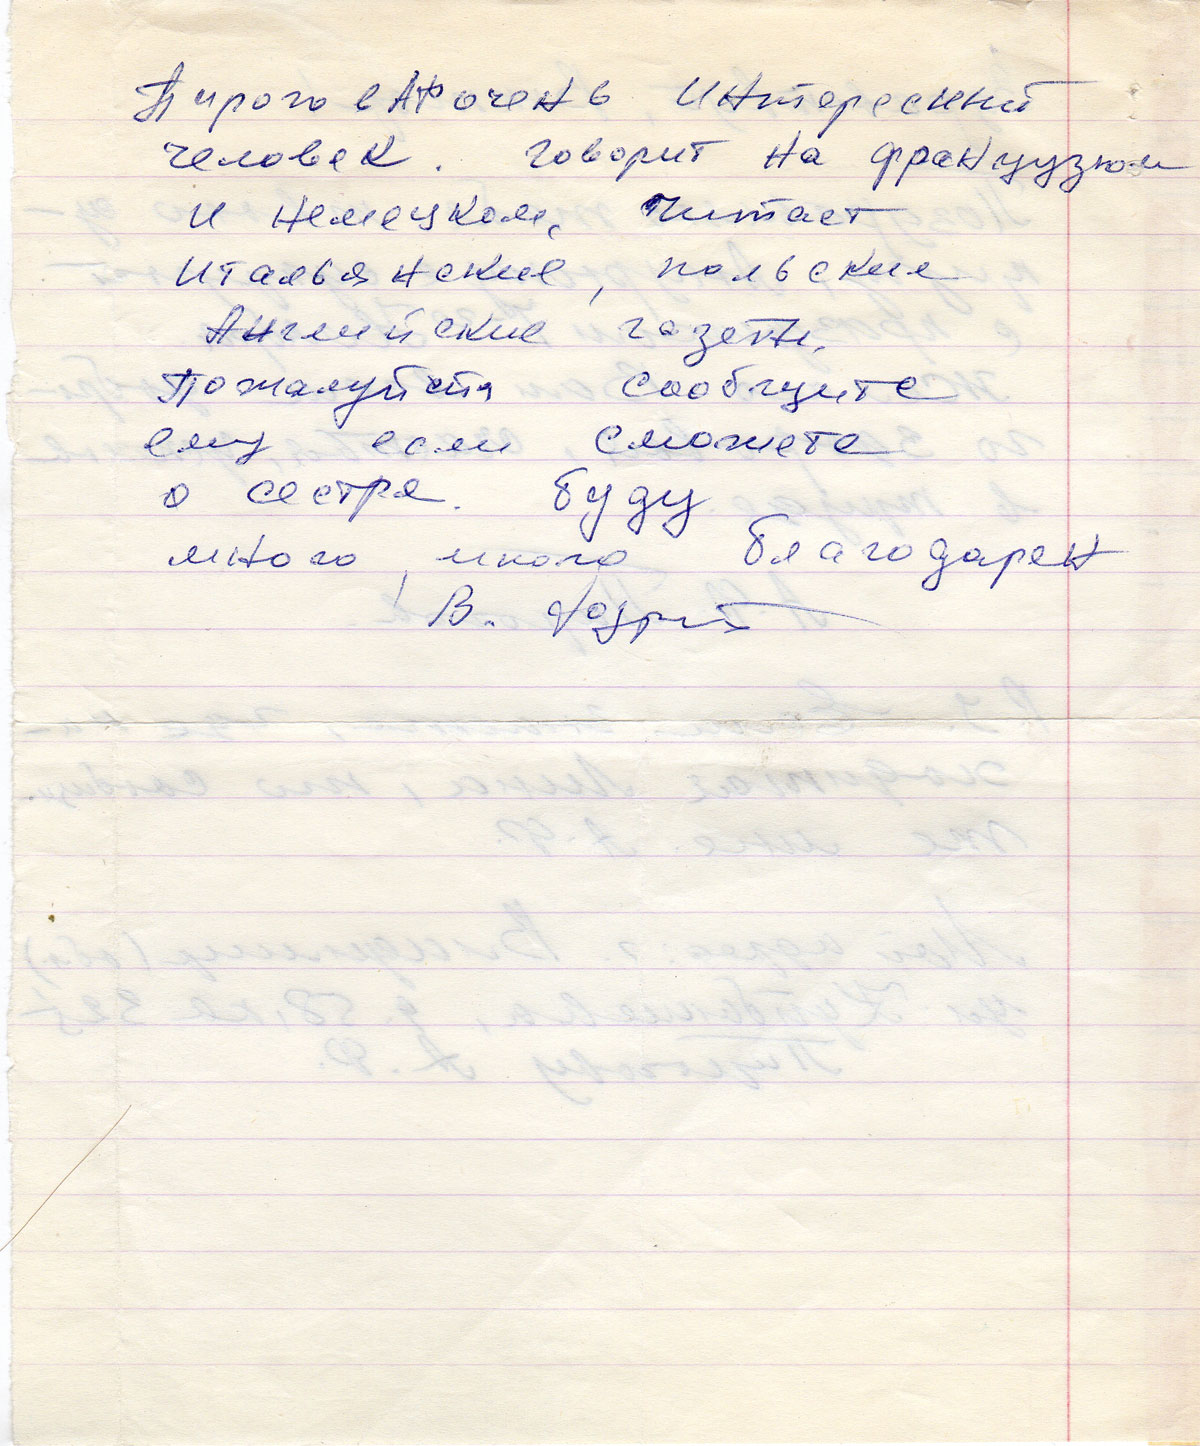 Пирогов АФ очень интересный
человек. говорит на французком
и немецком, читает
итальянские, польские
Английские газеты.
Пожалуйста сообщите
ему если сможете
о сестре. буду
много, много благодарен
В.